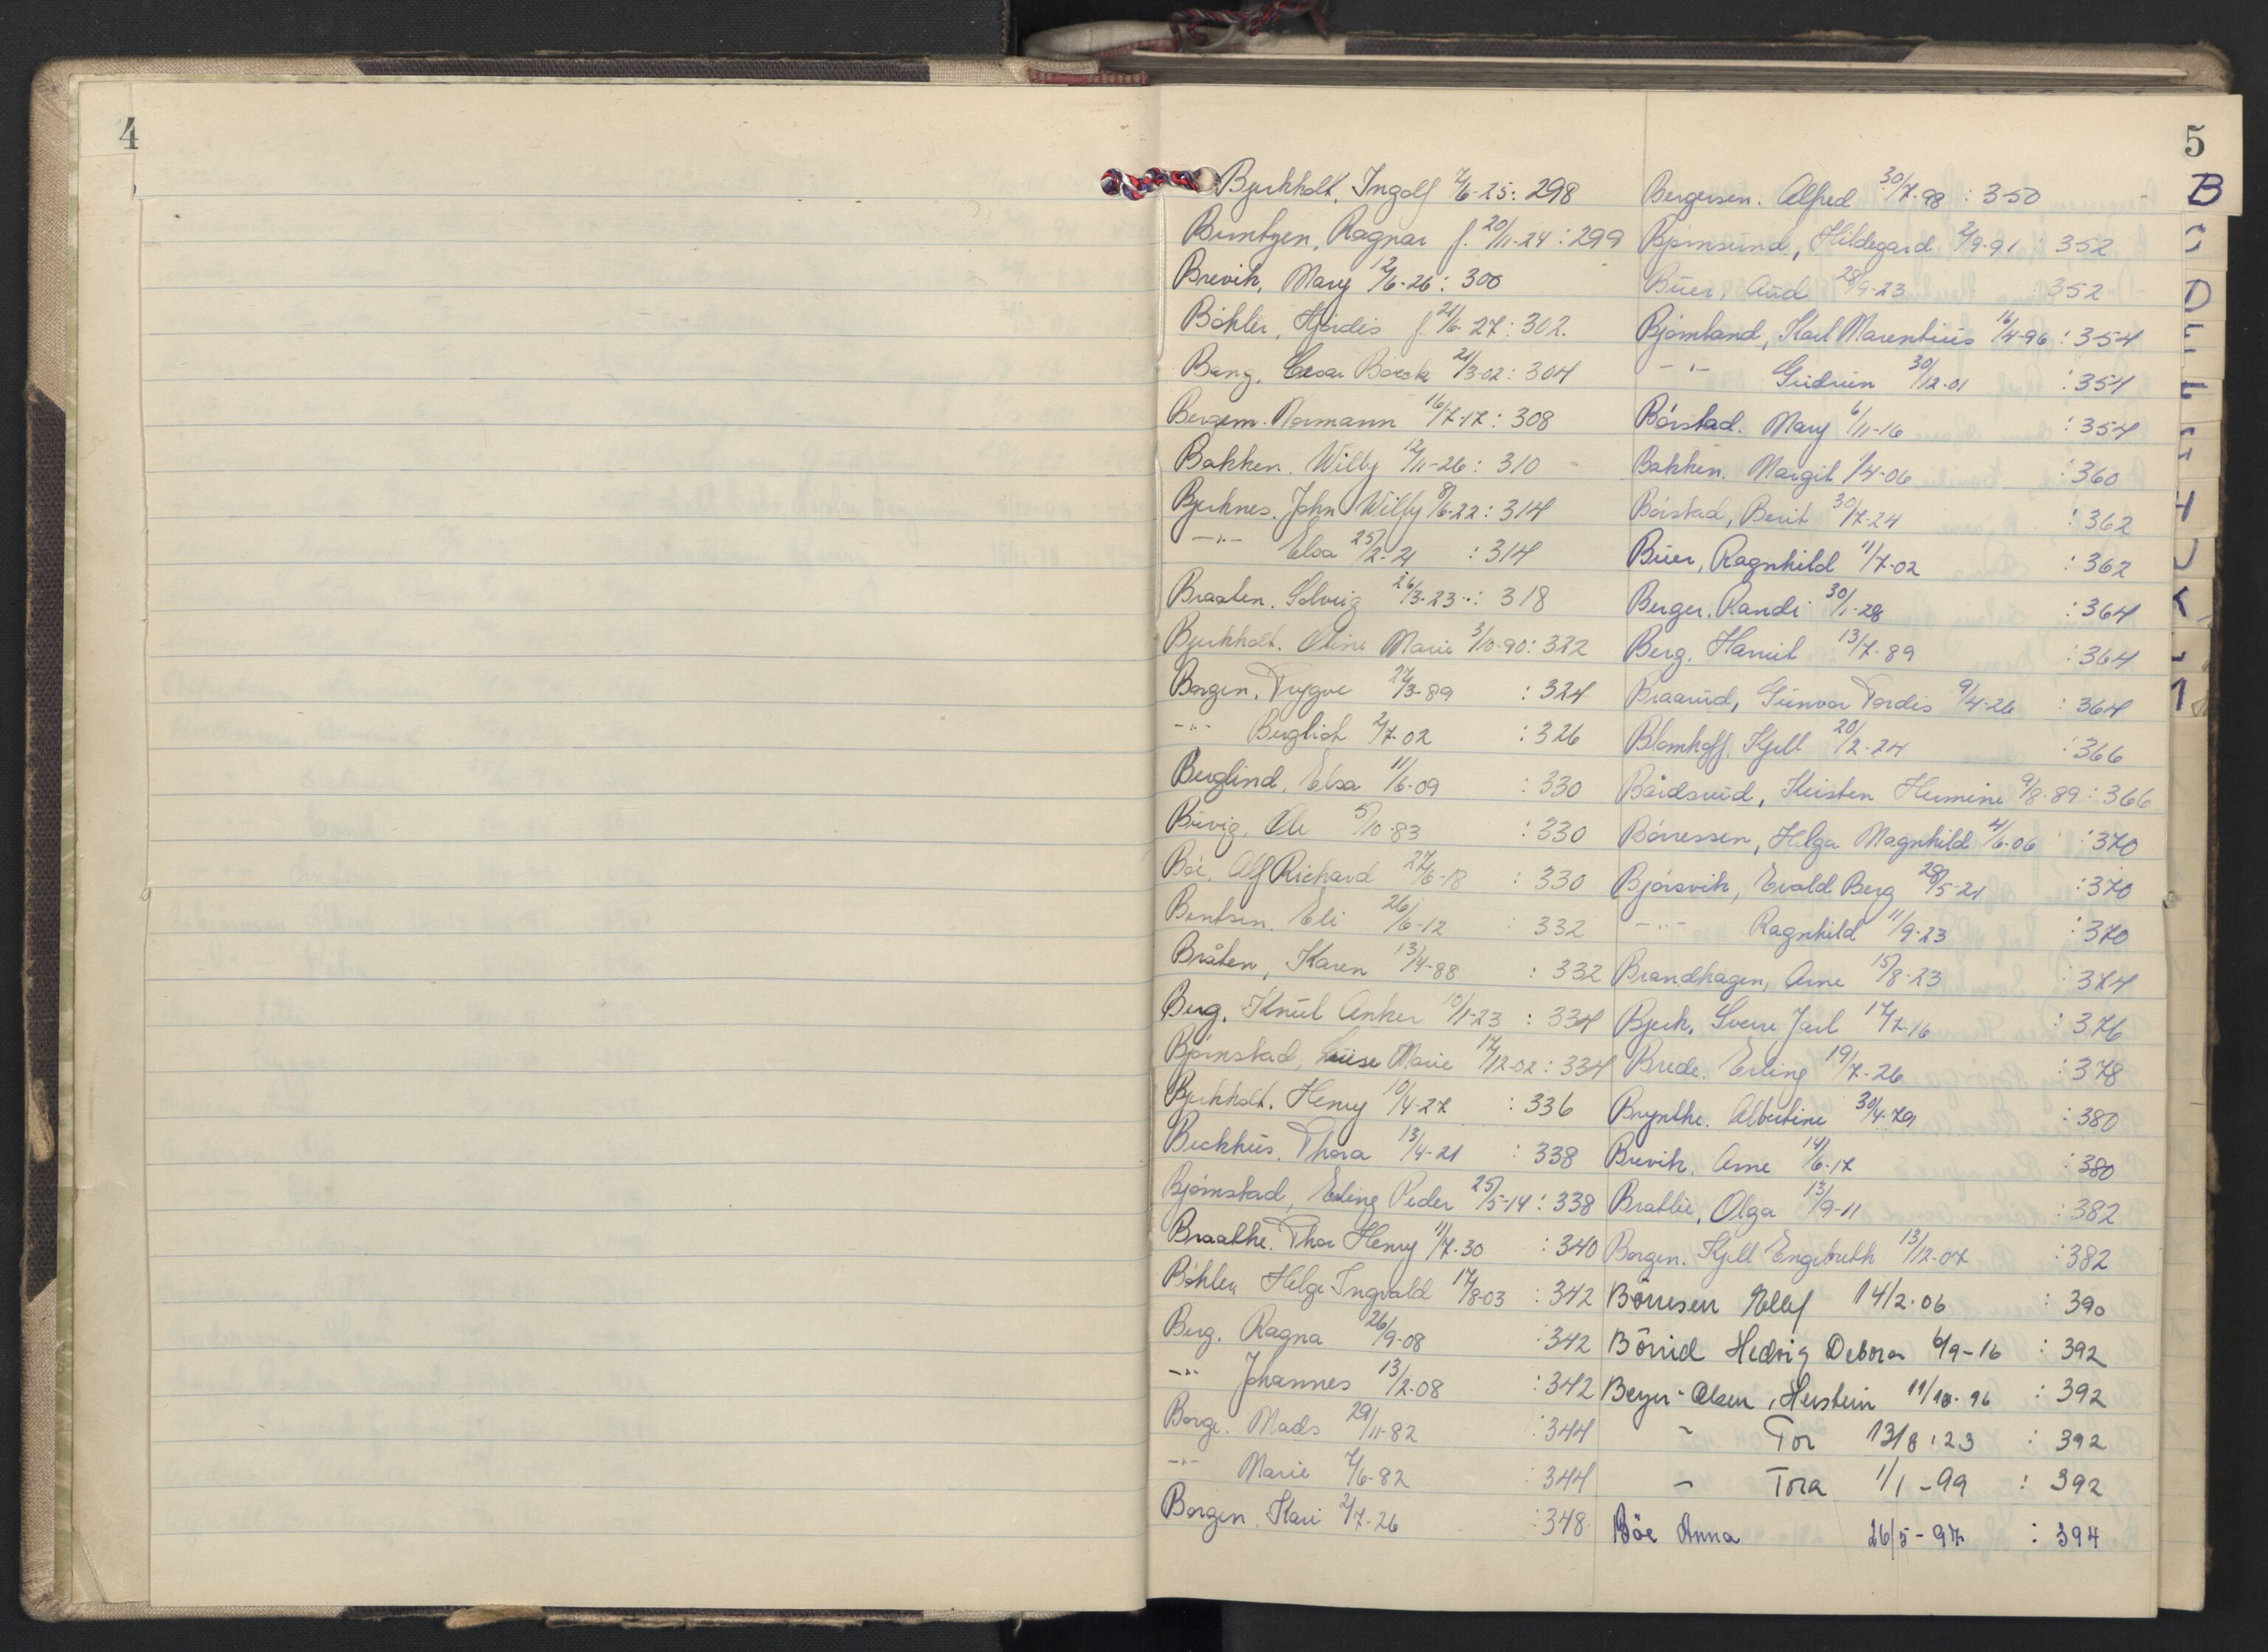 4
5
B
Bjerkholt, Ingolf 7/6-25: 298
Buntzen, Ragnar f. 20/11-24: 299
Brevik, Mary 12/6-26: 300
Bøhler, Hjørdis f 21/6-27: 302.
Bang, Cesar Boeck 21/3-02: 304
Bergem. Normann 16/7-17: 308
Bakken. Willy 12/11-26: 310
Bjerknes. John Willy 8/6-22: 314
-"- Elsa 25/2-21 : 314
Braaten. Solveig 26/3-23: 318
Bjerkholt. Oline Marie 3/10-90: 322
Borgen. Trygve 27/3-89 : 324
-"- Bergliot 2/7-02 : 326
Berglind, Elsa 11/6-09 : 330
Buvig, Ole 5/10-83 : 330
Bøe. Alf Richard 27/6-18 : 330
Bentsen. Eli 26/6-12 : 332
Bråten, Karen 13/4-88 : 332
Berg. Knut Anker 10/1-23 : 334
Bjørnstad, Luise Marie 17/12-02: 334
Bjerkholt. Henry 10/4-27 : 336
Beckhus. Thora 13/4-21 : 338
Bjørnstad, Erling Peder 25/5-14: 338
Braathe. Thor Henry 11/7-30 : 340
Bøhler, Helge Ingvald 17/8-03 : 342
Berg. Ragna 26/9-08 : 342
-"- Johannes 13/2-08 : 342
Borge. Mads 29/11-82 : 344
-"- Marie 7/6-82 : 344
Borgen, Kari 2/7-26 : 348
Bergersen. Alfred 30/7-98 : 350
Bjørnsund, Hildegard 2/9-91 : 352
Buer, Aud 28/9-23 : 352
Bjørnland, Karl Marentius 16/4-96 : 354
-"- Gudrun 30/12-01 : 354
Børstad. Mary 6/11-16 : 354
Bakken. Margit 1/4-06 : 360
Børstad, Berit 30/7-24 : 362
Buer, Ragnhild 11/7-02 : 362
Berger. Randi 30/1-28 : 364
Berg. Harriet 13/7-89 : 364
Braarud, Gunvor Tordis 9/4-26 : 364
Blomhoff. Kjell 20/2-24 : 366
Bårdsrud, Kirsten Hermine 9/8-89: 366
Børressen, Helga Magnhild 4/6-06 : 370
Bjørsvik, Evald Berg 28/5-21 : 370
-"- Ragnhild 11/9-23 : 370
Brandhagen, Arne 15/8-23 : 374
Bjerk, Sverre Jarl 17/7-16 : 376
Brede. Erling 19/7-26 : 378
Brynthe. Albertine 30/4-79 : 380
Brevik. Arne 14/6-17 : 380
Bratlie, Olga 13/9-11 : 382
Borgen. Kjell Engebreth 13/12-07 : 382
Börresen Ellef 14/2-06 : 390
Börrud Hedvig Debora 6/9-16 : 392
Beyer-Olsen, Herstein 11/10-96 : 392
" Tor 13/8-23 : 392
" Tora 1/1-99 : 392
Böe Anna 26/5-97 : 394
D
H
J
K